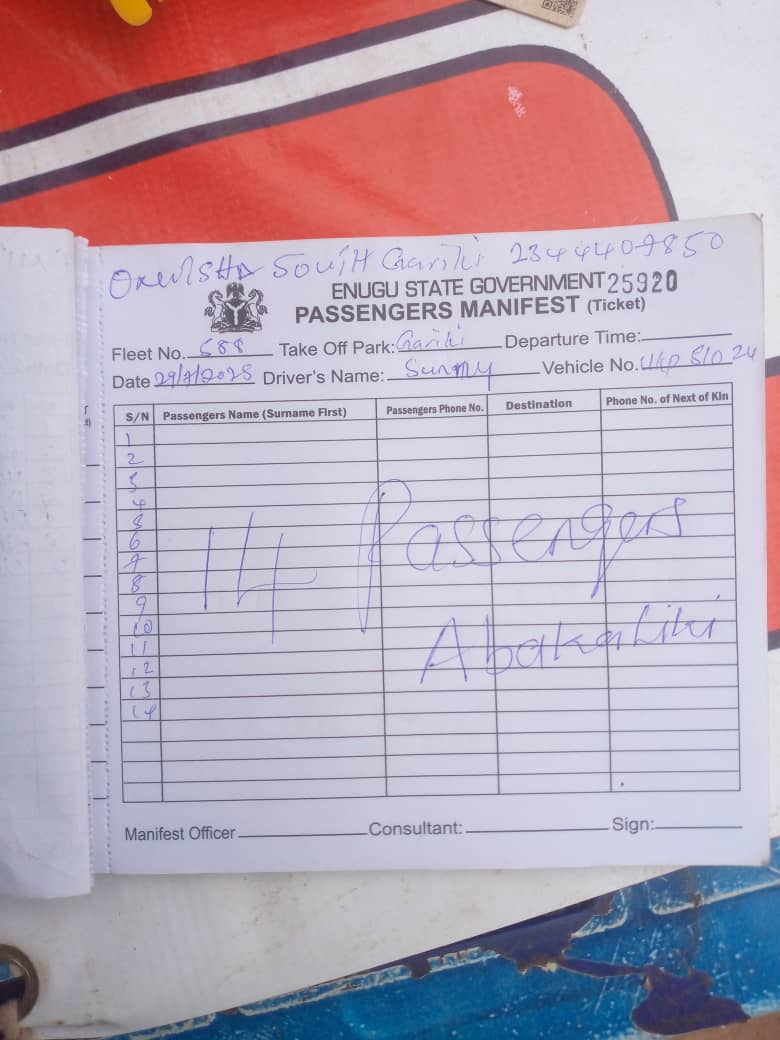 South Gariki 2344409850
ENUGU STATE GOVERNMENT 25920
PASSENGERS MANIFEST (Ticket)
Fleet No. 588 Take Off Park: Gariki Departure Time:
Date 29/7/2025 Driver's Name: Sunny Vehicle No.
S/N Passengers Name (Surname First) Passengers Phone No. Destination Phone No. of Next of Kin
1
2
3
4
5
6
7
8
9
10
11
12
13
14
14 Passengers
Abakaliki
Manifest Officer Consultant: Sign: